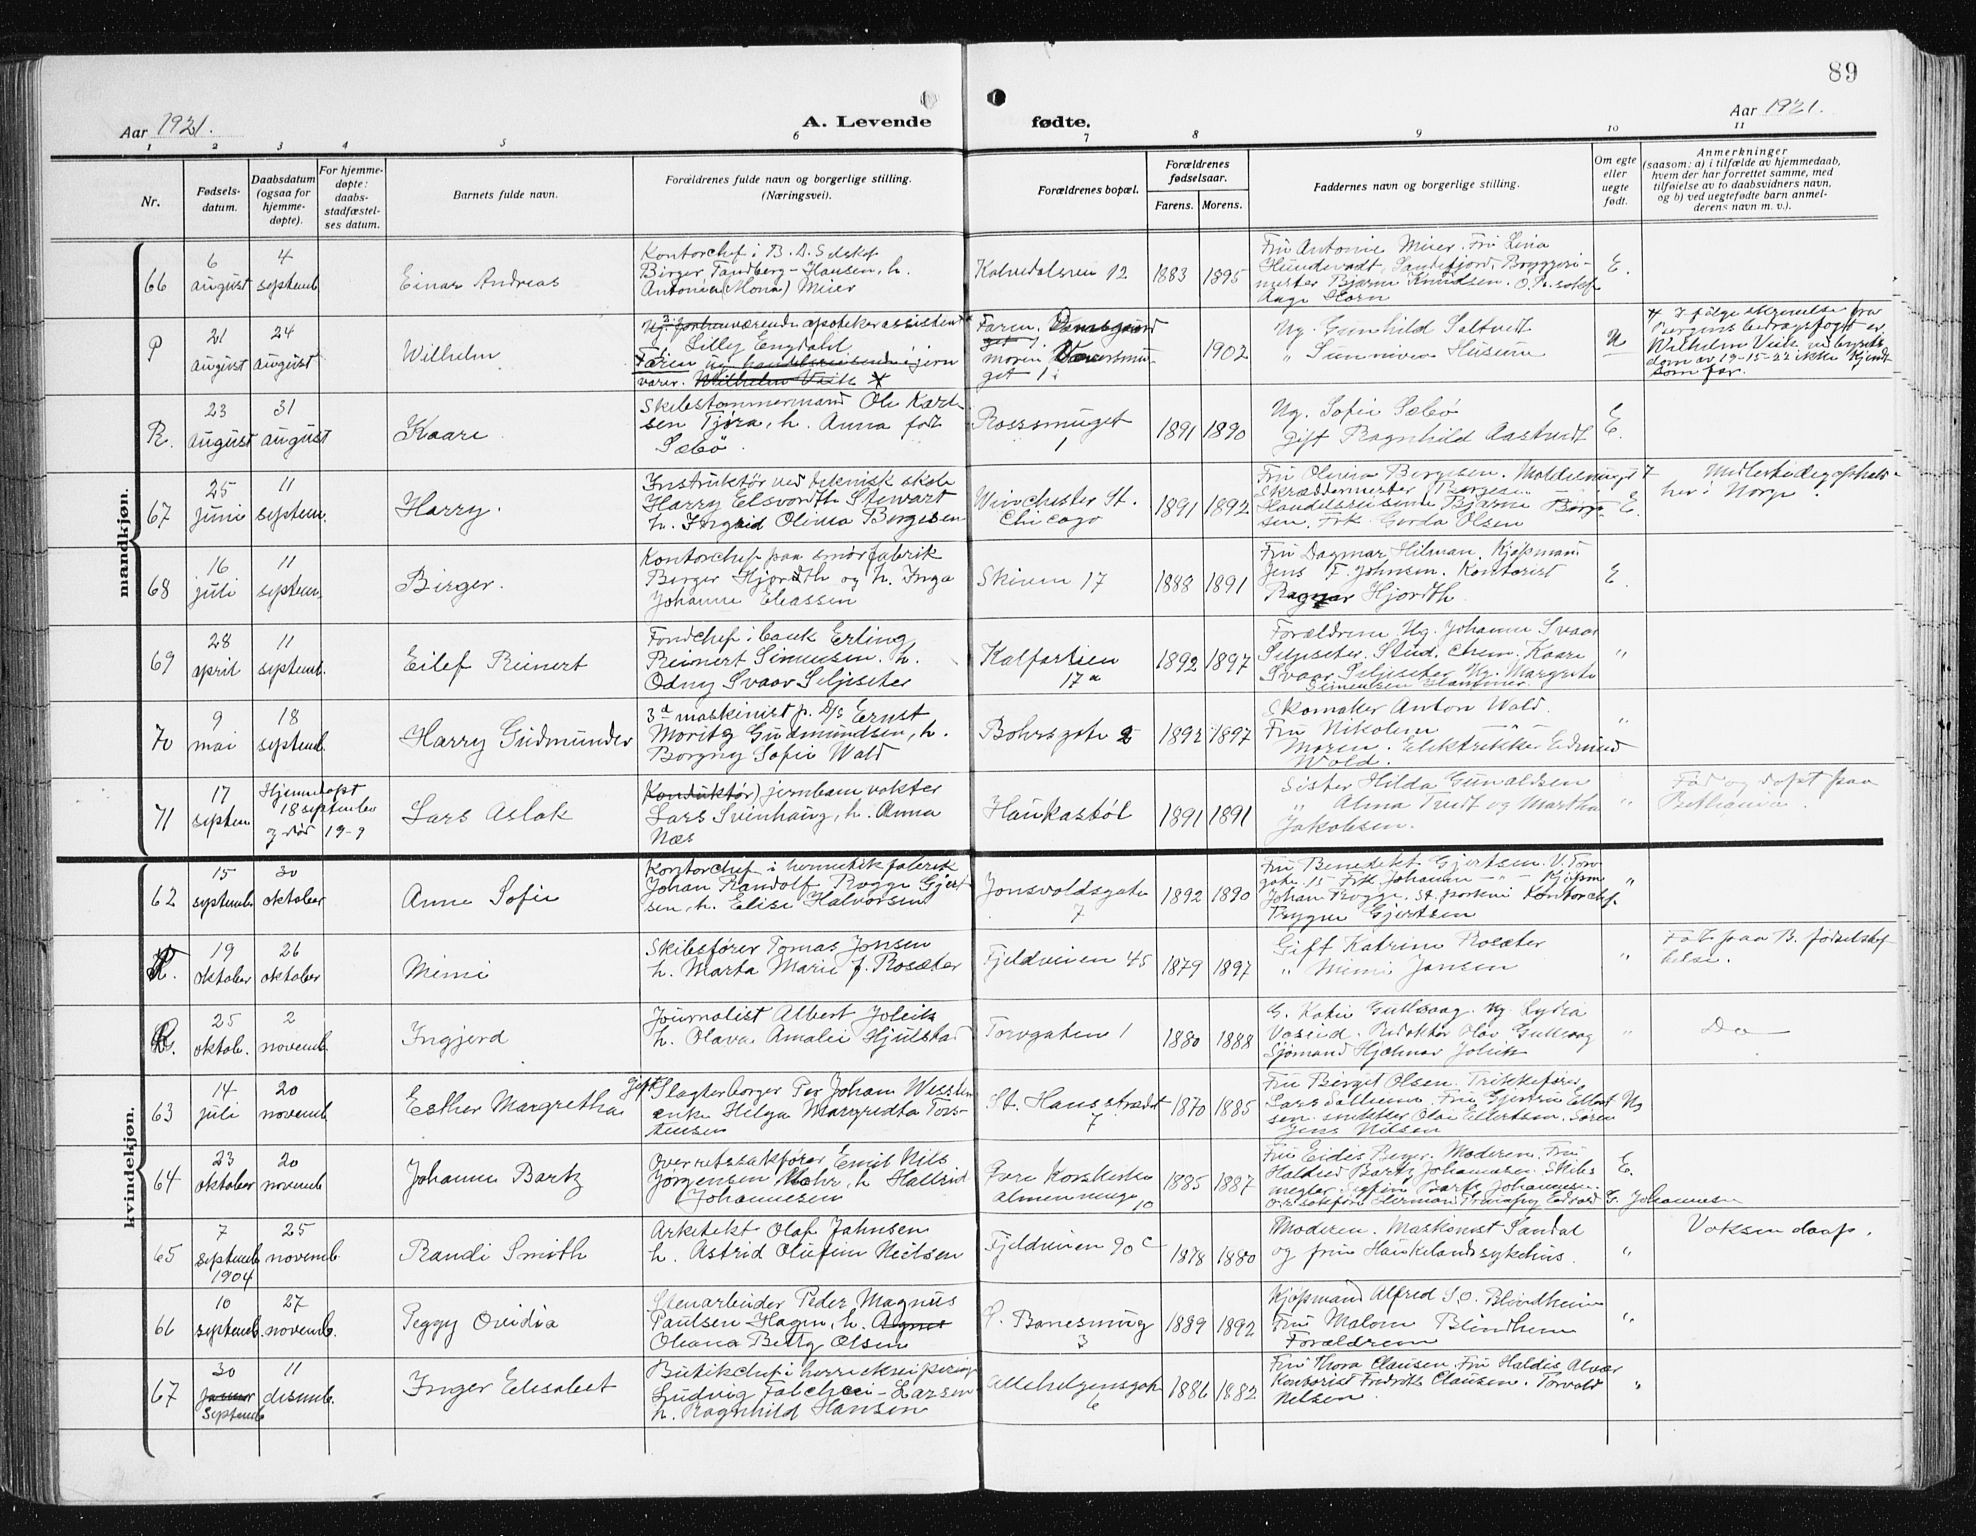 89
Aar 1921.
A. Levende
fødte.
Aar 1921.
1 2 3 4 5 6 7 8 9 10 11
Nr.
Fødsels-
datum.
Daabsdatum
(ogsaa for
hjemme-
døpte).
For hjemme-
døpte:
daabs-
stadfæstel-
ses datum.
Barnets fulde navn.
Forældrenes fulde navn og borgerlige stilling.
(Næringsvei).
Forældrenes bopæl.
Forældrenes
fødselsaar.
Farens. Morens.
Faddernes navn og borgerlige stilling.
Om egte
eller
uegte
født.
Anmerkninger
(saasom: a) i tilfælde av hjemmedaab,
hvem der har forrettet samme, med
tilføielse av to daabsvidners navn,
og b) ved uegtefødte barn anmel-
derens navn m. v.).
mandkjøn.
66
6
august
4
septemb.
Einar Andreas
Kontorchef i B. D. Selskap
Birger Tandberg-Hansen, h.
Antonia (Mona) Meier
Kalvedalsvn 12
1883 1895
Fru Antonie Meier. Fru Lina
Hundevadt, Sandefjord. Bryggeri-
mester Bjarne Knudsen. O.r.sakf.
Aage Horn
E.
P
21
august
24
august
Wilhelm
værende apotekerassistent
Lilly Engdahl
Faren ug. handelsreisende i jern
varer. Wilhelm Vaek
Faren. Damsgaard
moren
get 1.
1902
Ug. Gunhild Saltvedt
" Sunniva Husum
U
I følge skrivelse fra
Bergens bidragsfogt er
Wilhelm Vaek ved lagrets
dom av 19-15-22 ikke kjendt
som far.
R.
23
august
31
august
Kaare
Skibstømmermand Ole Karl-
sen Tjøra, h. Anna fød
Sæbø
Rossmuget
1
1891 1890
Ug. Sofie Sæbø
gift Ragnhild Aastvedt
E.
67
25
juni
11
septem.
Harry.
Instruktør ved teknisk skole
Harry Elsvordth Stewart
h. Ingrid Olivia Børgesen
Winchester St.
Chicago
1891 1892
Fru Olivia Børgesen. Moldesmuget 7
Skræddermester Børgesen
Handelsreisende Bjarne Børge-
sen. Frk Gerda Olsen
E.
Midlertidig ophold
her i Norge.
68
16
juli
11
septem.
Birger.
Kontorchef paa smørfabrik
Birger Hjordth og h. Inga
Johanne Eliassen
Skiven 17
1888 1891
Fru Dagmar Hilman. Kjøpmand
Jens F. Johnsen. Kontorist
Ragnar Hjordth
E.
69
28
april
11
septemb.
Eilef Reinert
Fondchef i bank Erling
Reinert Simensen. h.
Odny Svaar Seljesæter
Kalfarlien
17a
1892 1897
Forældrene. Ug. Johanne Svaar
Seljesæter. Stud. chem. Kaare
Svaar Seljesæter. Ug. Margrete
Simensen Hammer
"
70
9
mai
18
septemb.
Harry Gudmunder
3die maskinist p. D/S Ernst
Moritz Gudmundsen, h.
Borgny Sofie Wold
Bohrsgate 2
1892 1897
Skomaker Anton Wold.
Fru Nikoline
Moren. Elektrikker Edmund
Wold.
"
71
17
septem
Hjemmedøpt
18 september
og død 19-9
Lars Aslak
Konduktør) jernbanevokter
Lars Sveinhaug, h. Anna
Næs
Haukastøl
1891 1891
Sister Hilda Gunaldsen
" Alma Tvedt og Martha
Jakobsen.
"
Fød og døpt paa
Bethania.
kvindekjøn.
62
15
septemb.
30
oktober
Anne Sofie
Kontorchef i hermetikfabrik
Johan Randolf Rogge Gjert-
sen, h. Elise Halvorsen
Jonsvoldsgate
7
1892 1890
Fru Benedikt Gjertsen. V. Torv-
gate 15. Frk. Johanne - " - Kjøpm
Johan Rogge. Kontorchef
Trygve Gjertsen
"
R.
19
oktober
26
oktober
Mimi
Skibsfører Tomas Jansen
h. Marta Marie f. Rosæter
Fjeldveien 45
1879 1897
Gift Katrine Rosæter
" Mimi Jansen
"
Fød paa B. fødselshj-
R.
25
oktob.
2
novemb.
Ingjerd
Journalist Albert Joleik
h. Olava Amalie Hjulstad
Torvgaten 1
1880 1888
G. Katie Gullvaag. Ug. Lydia
Redaktør Olav Gullvaag
Sjømand Hjalmar Joleik
"
Do
63
14
juli
20
novemb.
Esther Margretha
gift Slagterborger Per Johan Wessten
enke Helga Margretha Tors-
tensen
St. Hansstrædet
7
1870 1885
Fru Birget Olsen. Trikkefører
Lars Salheim. Fru Gjertine Eilert-
sen. snekker Olai Eilertsen. Søren
Jens Nilsen
U
64
23
oktober
20
novemb.
Johanne Bartz
Overretssakfører Emil Nils
Jørgensen Mohr, h. Haldis
Johannesen
Øvre Korskirke
almenning
10
1885 1887
Fru Eidis Beyer. Moderen. Fru
Haldis Bartz Johannesen. Skibs
megler Bartz Johannesen.
o.r.sakfører Herman Trumpy. Edvard G. Johannesen
E.
65
7
septemb.
1904
25
novemb.
Randi Smith
Arkitekt Olaf Jahnsen
h. Astrid Olufine Neilsen
Fjeldveien 90c
1878 1880
Moderen. Maskinist Sandal
og frue Haukelandssykehus.
"
Voksen daap.
66
10
septemb.
27
novemb.
Peggy Ovidia
Stenarbeider Peder Magnus
Paulsen Hagen, h. Agnes
Oliana Betty Olsen
Ø. Banesmug
3
1889 1892
Kjøpmand Alfred S.O. Blindheim
Fru Malene Blindheim
Forældrene
"
67
30
januar
Septemb.
11
desemb.
Inger Elisabet
Butikchef i herreekvipering
Ludvig Falch-Larsen
h. Ragnhild Hansen
Allehelgensgate
6
1886 1882
Fru Thora Clausen. Fru Haldis Alvær
Kontorist Fredrik Clausen. Torvald
Nelsen
"